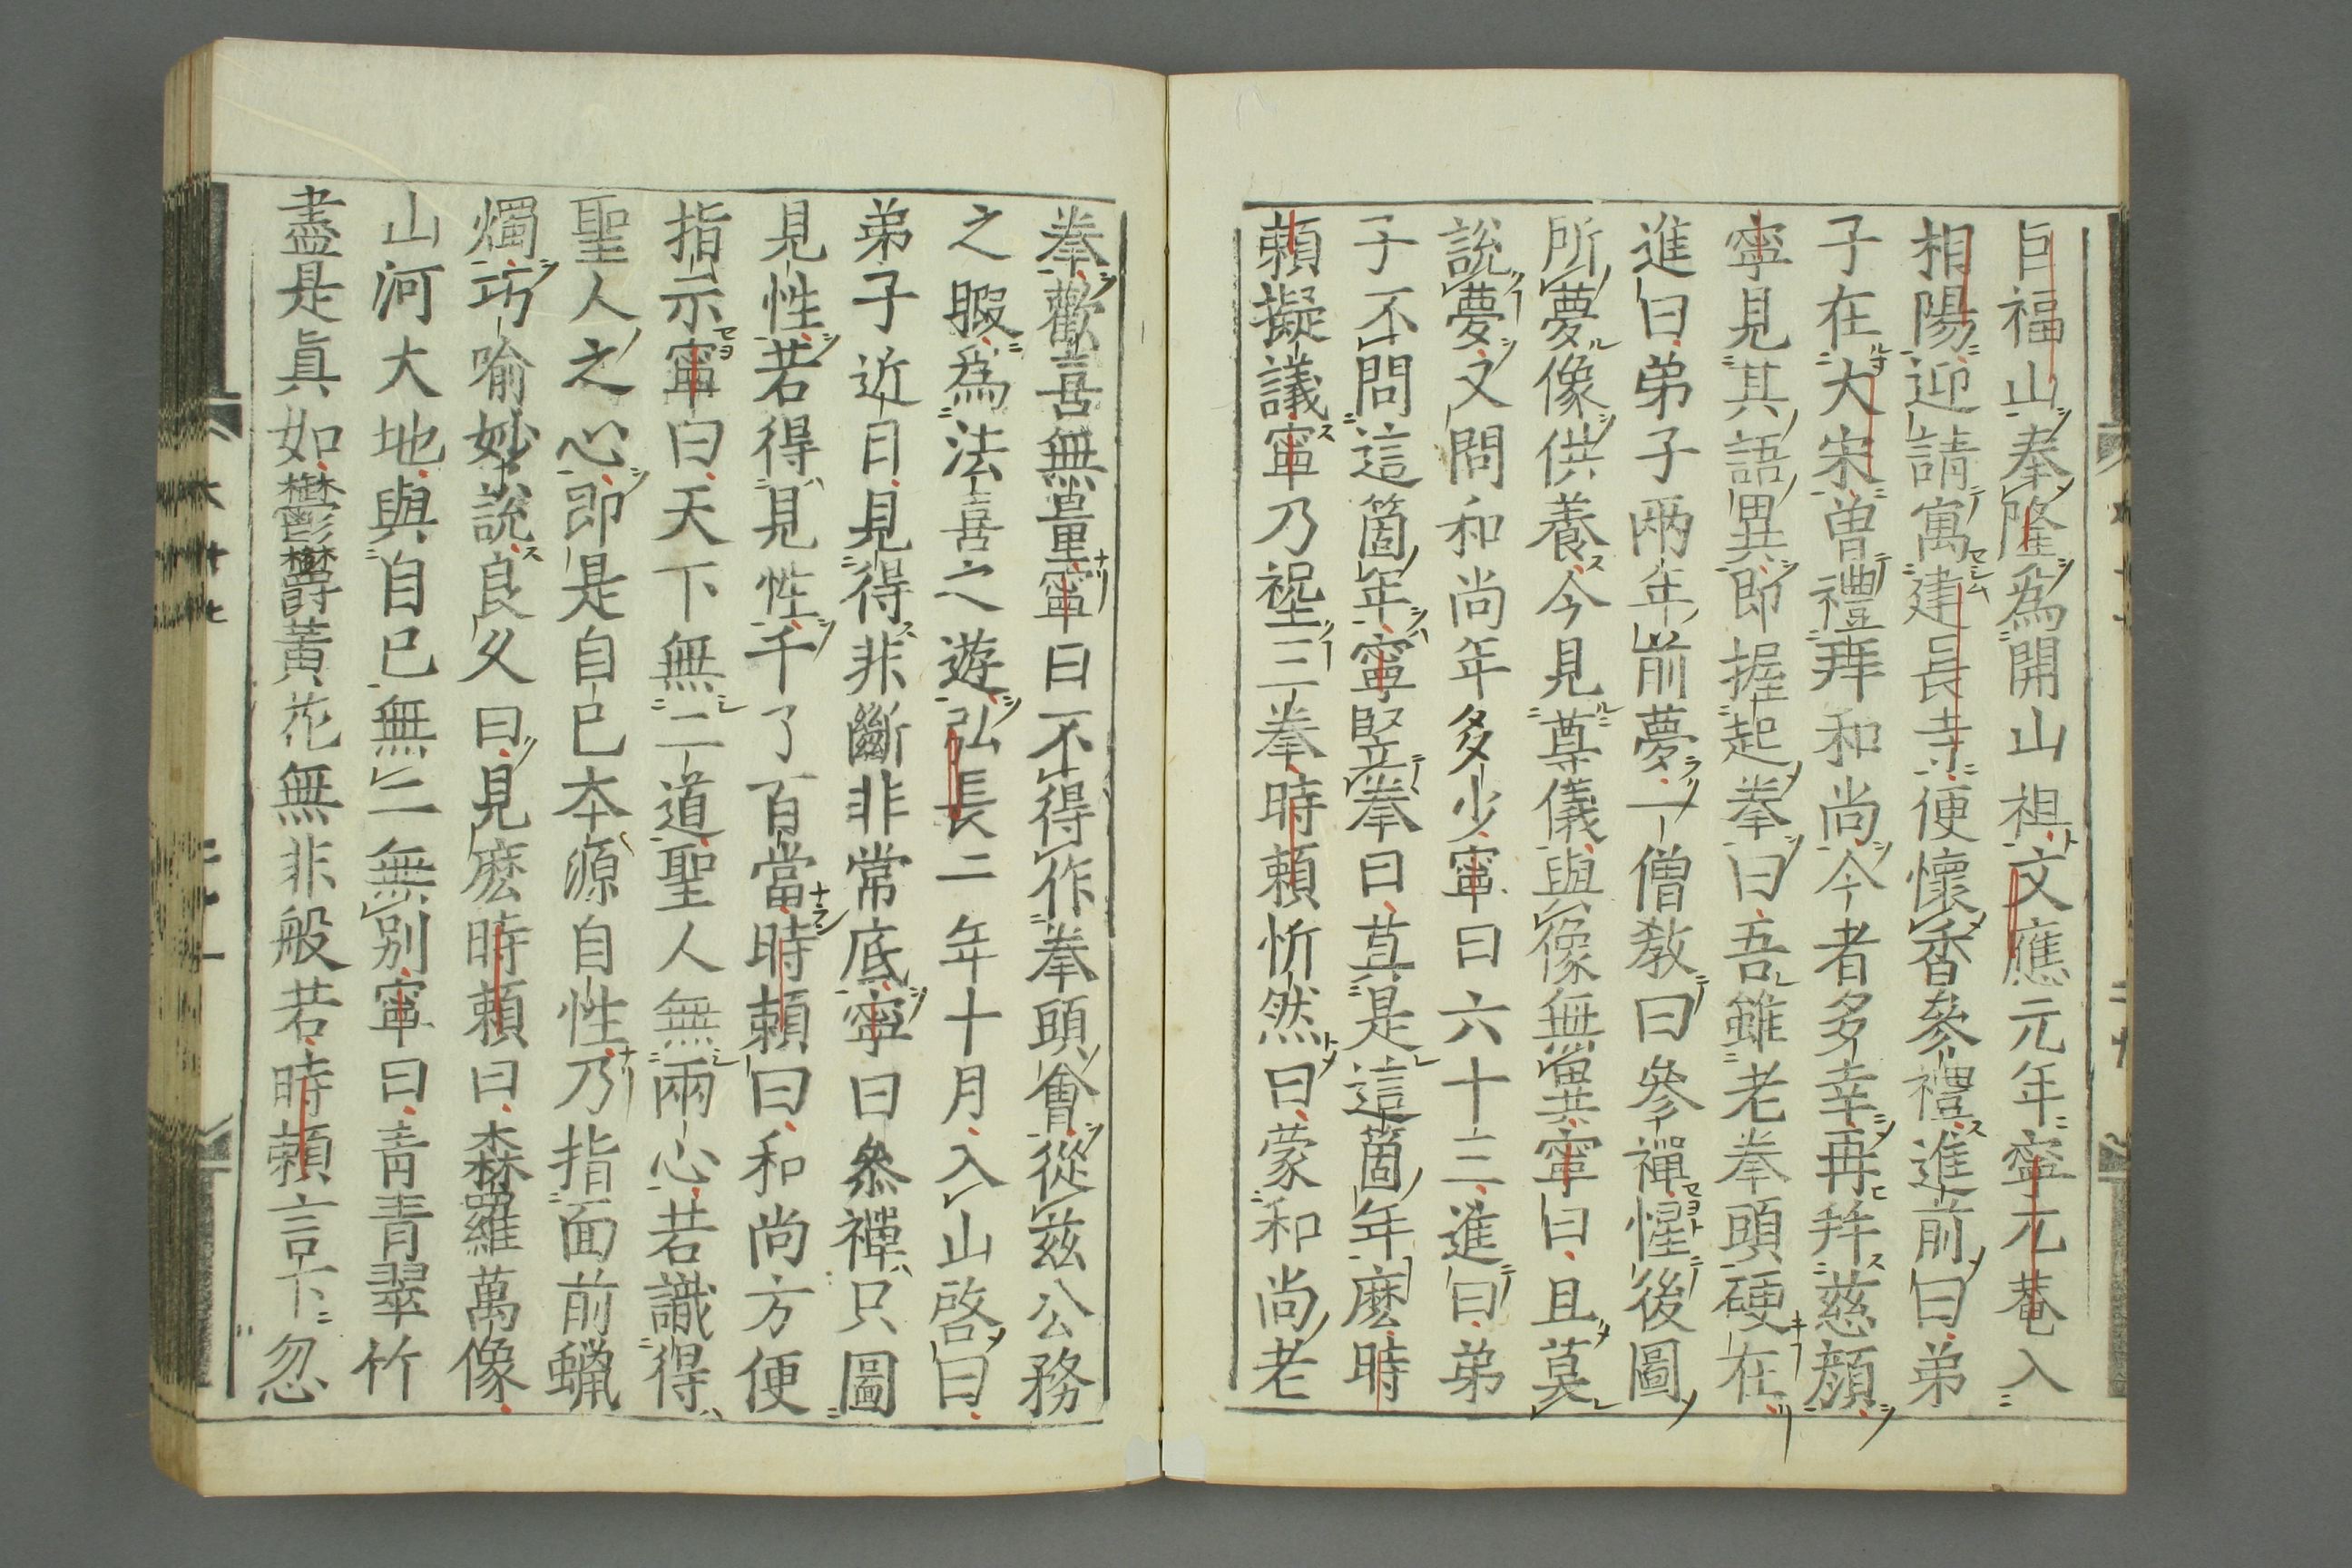 巨福山奉隆爲開山祖文應元年寧元菴入
相陽迎請寓建長寺便懷香參禮進前曰弟
子在大宋曽禮拜和尚今者多幸再拜慈顔
寧見其語異即握起拳曰吾雖老拳頭硬在
進曰弟子兩年前夢一僧教曰參禪惺後圖
所夢像供養今見尊儀與像無異寧曰且莫
說夢又問和尚年多少寧曰六十三進曰弟
子不問這箇年寧竪拳曰莫是這箇年麼時
頼擬議寧乃祝三拳時頼忻然曰蒙和尚老
拳歡喜無量寧曰不得作拳頭會從兹公務
之暇爲法喜之遊弘長二年十月入山啓曰
弟子近日見得非斷非常底寧曰參禪只圖
見性若得見性千了百當時頼曰和尚方便
指示寧曰天下無二道聖人無兩心若識得
聖人之心即是自己本源自性乃指面前蠟
燭巧喻妙說良久曰見麼時頼曰森羅萬像
山河大地與自己無二無别寧曰青青翠竹
盡是眞如鬱鬱黃花無非般若時頼言下忽